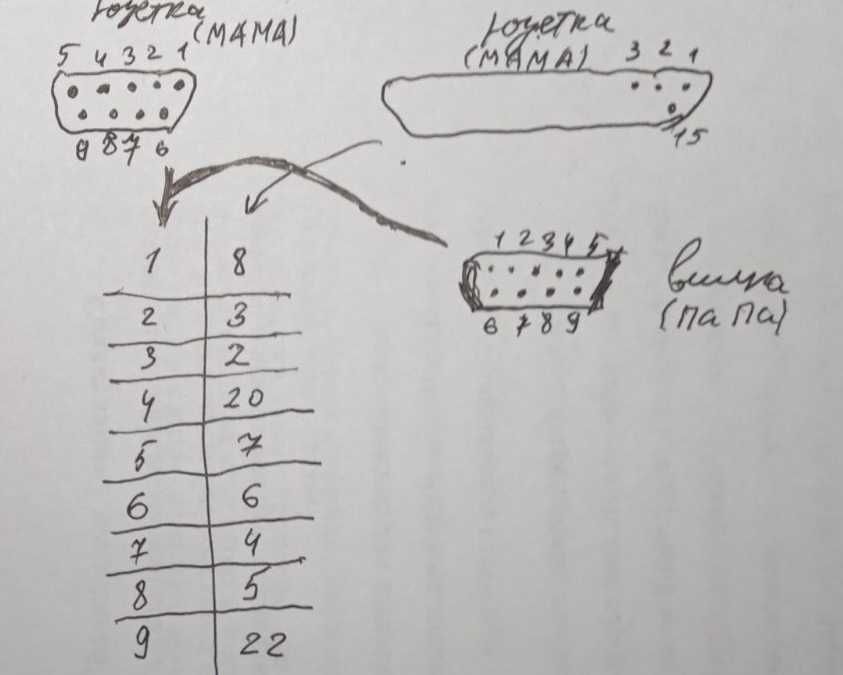 розетка
(МАМА)
5 4 3 2 1
9 8 7 6
розетка
(МАМА) 3 2 1
15
1 2 3 4 5
6 7 8 9
вилка
(папа)
1 8
2 3
3 2
4 20
5 7
6 6
7 4
8 5
9 22